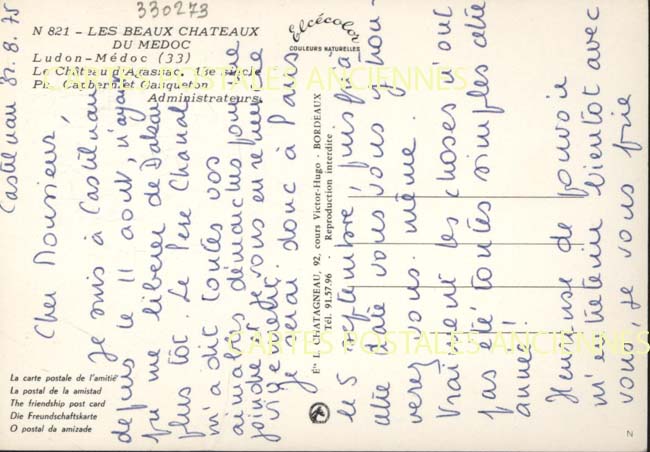 330273
N 821 - LES BEAUX CHATEAUX
DU MEDOC
Ludon-Médoc (33)
Le Château d'Agassac, 13e siècle
Ph. Gasqueton
Administrateurs
Elcécolor
COULEURS NATURELLES
CARTES POSTALES ANCIENNES
CARTES POSTALES ANCIENNES
Ets L. CHATAGNEAU, 92, cours Victor-Hugo - BORDEAUX
Tél. 91.57.96 - Reproduction interdite
La carte postale de l'amitié
La postal de la amistad
The friendship post card
Die Freundschaftskarte
O postal da amizade
N
8.75
Cher Monsieur,
Je suis à Castelnau
depuis le 11 août, n'ayant
pu me libérer de Dakar
plus tôt. Le Père Chanal
m'a dit toutes vos
aimables démarches pour me
joindre et je vous en remercie
vivement.
Je serai donc à Paris
le 5 septembre, puisqu'à
cette date vous vous y trou-
verez vous-même.
Vraiment les choses ont
pas été toutes simples cette
année.
Heureuse de pouvoir
m'entretenir bientôt avec
vous, je vous prie